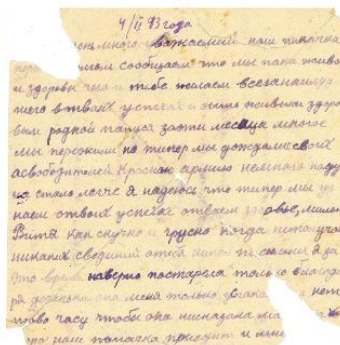 4/II 43 года
много уважаемый наш папачка
сообщаем что мы пока живы
и здоровы чего и тебе желаем всего наилуч
шего в твоих успехах и быть живым здоро
вым родной папуся за эти месяца многое
мы пережили но типер мы дождались своих
асвободителей Красную армию немного на
стало легче я надеюсь что типер мы уз
наем о твоих успехах о твоем милый
как скучно и грусно когда неполучаю
никаких сведений от тебя я за
это время наверно постарела только благода
ря она меня только нет
таво часу чтобы она несказала ма
наш папачка приедит и мне